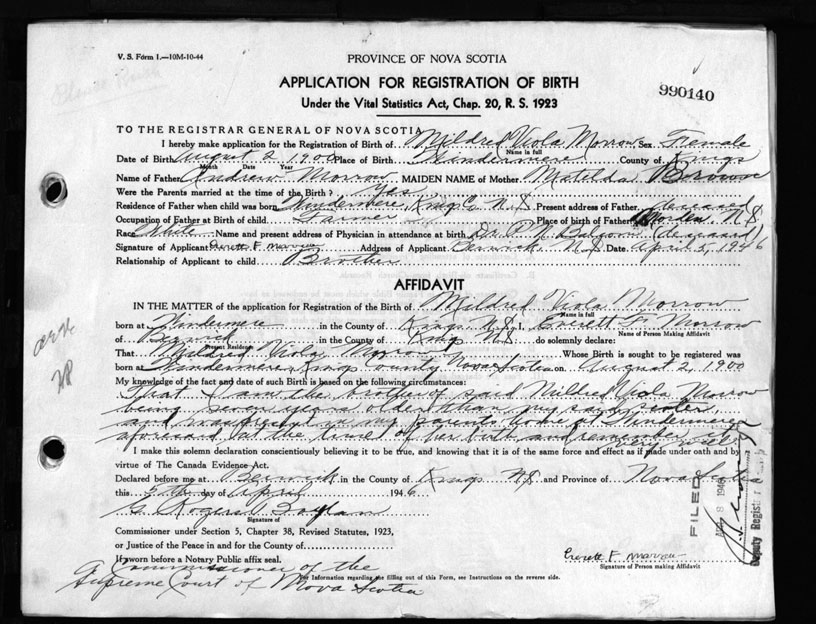 V. S. Form 1.—10M-10-44
PROVINCE OF NOVA SCOTIA
APPLICATION FOR REGISTRATION OF BIRTH
Under the Vital Statistics Act, Chap. 20, R. S. 1923
990140
TO THE REGISTRAR GENERAL OF NOVA SCOTIA
I hereby make application for the Registration of Birth of Mildred Viola Morrow Sex Female
Name in full
Date of Birth August 2 1900 Place of Birth Windermere County of Kings
Month Date Year
Name of Father Andrew Morrow MAIDEN NAME of Mother Matilda Brown
Were the Parents married at the time of the Birth? Yes
Residence of Father when child was born Windermere, Kings Co. N.S. Present address of Father deceased
Occupation of Father at Birth of child Farmer Place of birth of Father Morden N.S
Race White Name and present address of Physician in attendance at birth Dr. P. N. Balcom (deceased)
Signature of Applicant Everett F Morrow Address of Applicant Berwick, N.S. Date April 5, 1946
Relationship of Applicant to child Brother
AFFIDAVIT
IN THE MATTER of the application for Registration of the Birth of Mildred Viola Morrow
Name in full
born at Windermere in the County of Kings N.S I, Everett F. Morrow
Name of Person Making Affidavit
of Berwick in the County of Kings N.S do solemnly declare:
Present Residence
That Mildred Viola Morrow Whose Birth is sought to be registered was
born at Windermere, Kings County, Nova Scotia on August 2, 1900
My knowledge of the fact and date of such Birth is based on the following circumstances:
That I am the brother of said Mildred Viola Morrow
being seven years older than my said sister
and was present in my parents home at Windermere
aforesaid at the time of her birth and remember very well
I make this solemn declaration conscientiously believing it to be true, and knowing that it is of the same force and effect as if made under oath and by
virtue of The Canada Evidence Act.
Declared before me at Berwick in the County of Kings N.S and Province of Nova Scotia
this 5th day of April 1946
G Rogers
Signature of
Commissioner under Section 5, Chapter 38, Revised Statutes, 1923,
or Justice of the Peace in and for the County of
If sworn before a Notary Public affix seal.
A Commissioner of the
Supreme Court of Nova Scotia
For Information regarding the filling out of this Form, see Instructions on the reverse side.
Everett F Morrow
Signature of Person making Affidavit
FILED
8 1946
Deputy Registrar